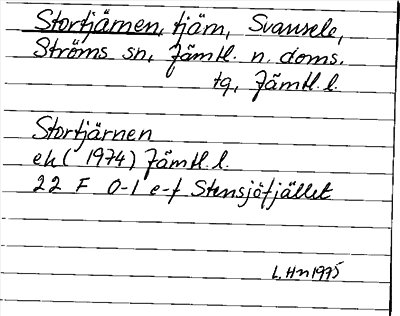 Stortjärnen, tjärn, Svansele,
Ströms sn, Jämtl. n. doms.
tg, Jämtl. l.
Stortjärnen
ek (1974) Jämtl. l.
22 F 0-1 e-f Stensjöfjället
L. Hn 1995